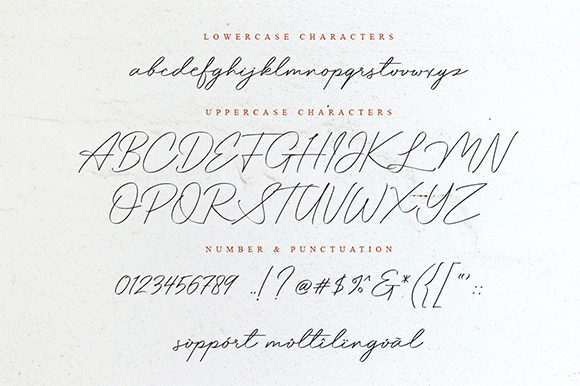 LOWERCASE CHARACTERS
abcdefghijklmnopqrstuvwxyz
UPPERCASE CHARACTERS
ABCDEFGHIJKLMN
OPQRSTUVWXYZ
NUMBER & PUNCTUATION
0123456789 ..!?@#$%^&*({["'::
sùppórt moltilîngoãl